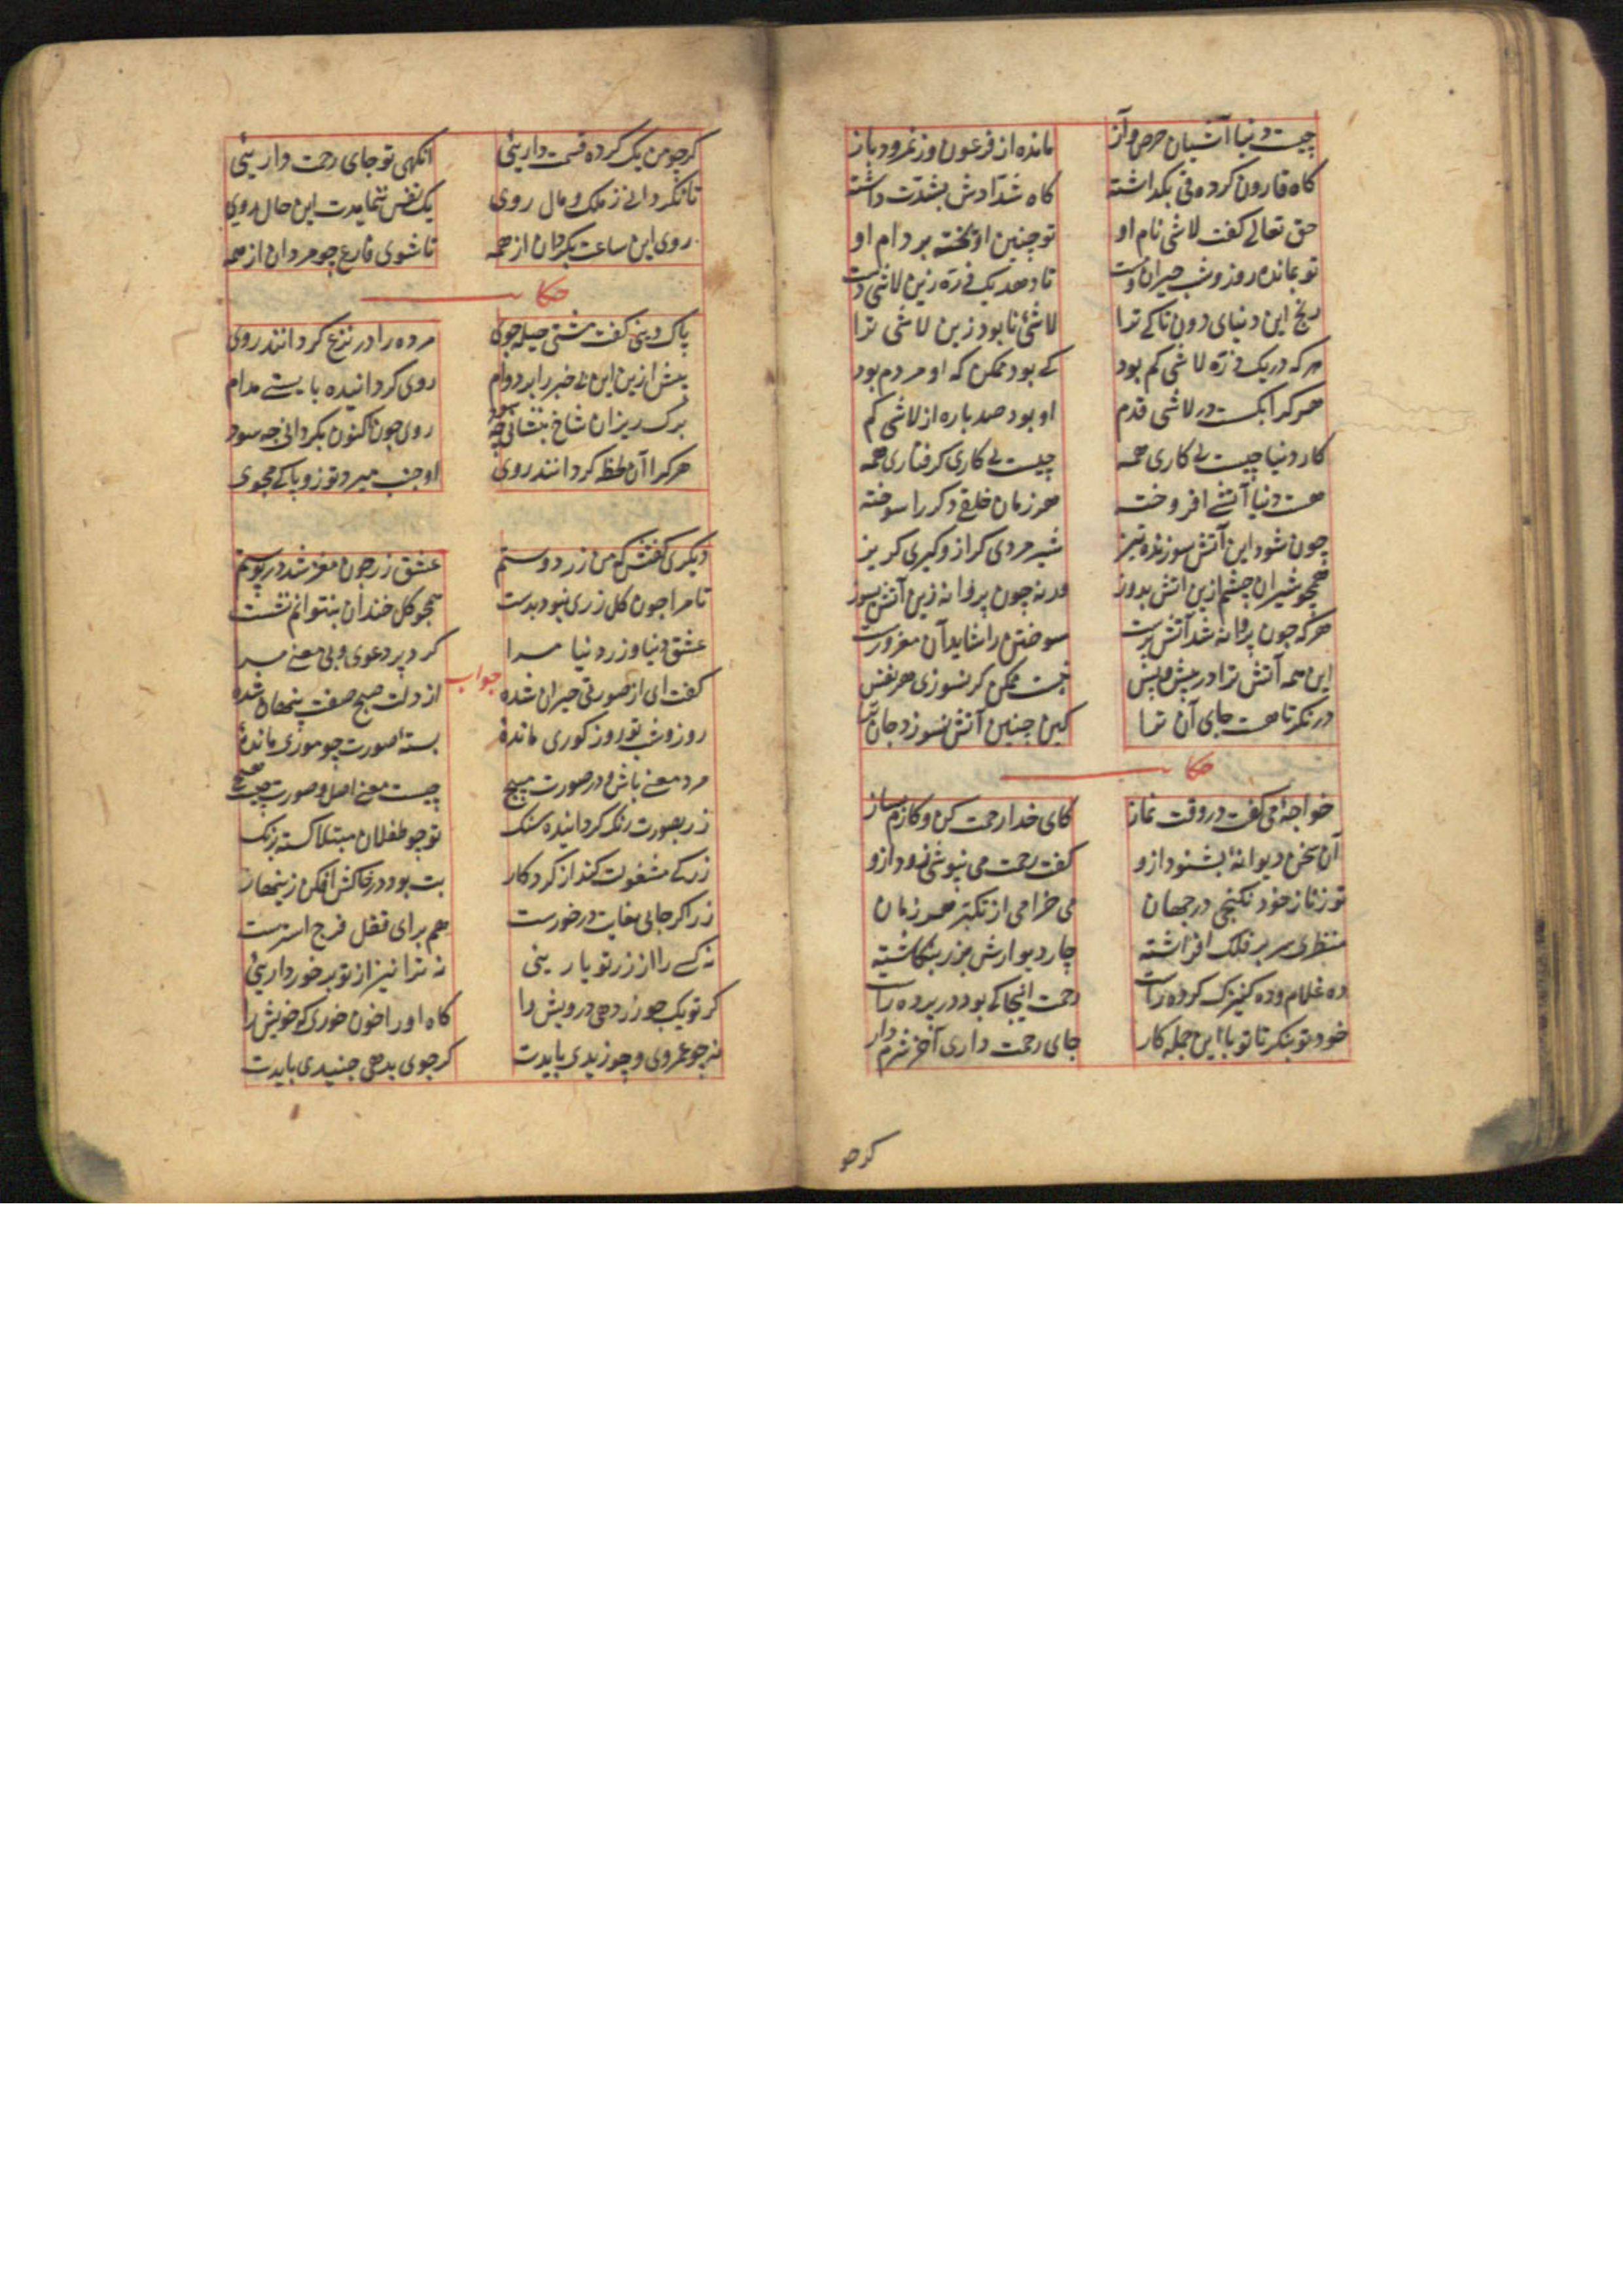 چیست دنیا آشیان حرص و آز مانده از فرعون وز نمرود باز
کاه قارون کرده قی بکذاشته کاه شدّادش بشدّت داشته
حق تعالی کفت لاشی نام او تو چنین آویخته بر دام او
تو بمانده روز و شب حیران و مست تا دهد یک ذرّه زین لاشی دست
رنج این دنیای دون تا کی ترا لاشیٔ نابود زین لاشی ترا
هر که در یک ذرّه لاشی کم بود کی بود ممکن که او مردم بود
هر که را بکسست در لاشی قدم او بود صد باره از لاشی کم
کار دنیا چیست بی کاری همه چیست بی کاری کرفتاری همه
هست دنیا آتشی افروخته هر زمان خلقی دکر را سوخته
چون شود این آتش سوزنده تیز شیر مردی کر ازو کیری کریز
همچو شیران چشم ازین آتش بدوز ورنه چون پروانه زین آتش بسوز
هر که چون پروانه شد آتش پرست سوختن را شاید آن مغرور مست
این همه آتش ترا در پیش و پس نیست ممکن کر نسوزی هر نفس
درنکر تا هست جای آن ترا کین چنین آتش نسوزد جان ترا
حکا
خواجهٔ می کفت در وقت نماز کای خدا رحمت کن و کارم بساز
آن سخن دیوانهٔ بشنود ازو کفت رحمت می نیوشی زود ازو
تو ز ناز خود نکنجی در جهان می خرامی از تکبر هر زمان
منظری سر بر فلک افراشته چار دیوارش بزر بنکاشته
ده غلام و ده کنیزک کرده راست رحمت اینجا کی بود در پرده راست
خود تو بنکر تا تو با این جمله کار جای رحمت داری آخر شرم دار
کرچو
کر چو من یک کرده قسمت داریئی انکهی تو جای رحمت داریئی
تا نکردانی ز ملک و مال روی یک نفس ننمایدت این حال روی
روی این ساعت بکردان از همه تا شوی فارغ چو مردان از همه
حکا
پاک دینی کفت مشتی حیله جوی مرده را در نزع کردانند روی
پیش ازین این بی خبر را بر دوام روی کردانیده بایستی مدام
برک ریزان شاخ بنشانی چه سود روی چون اکنون بکردانی چه سود
هر کرا آن لحظه کردانند روی او جنب میرد تو زو پاکی مجوی
دیکری کفتش که من زر دوستم عشق زر چون مغز شد در پوستم
تا مرا چون کل زری نبود بدست همچو کل خندان بنتوانم نشست
عشق دنیا و زر دنیا مرا کرد پر دعوی و بی معنی مرا
جواب
کفت ای از صورتی حیران شده از دلت صبح صفت پنهان شده
روز و شب تو روز کوری مانده بستهٔ صورت چو موری مانده
مرد معنی باش در صورت مپیچ چیست معنی اصل و صورت چیست هیچ
زر بصورت رنک کردانیده سنک تو چو طفلان مبتلا کشته برنک
زر که مشغولت کند از کردکار بت بود در خاکش افکن زینهار
زر اکر جایی بغایت درخورست هم برای قفل فرج استرست
نه کسی را از زر تو یاریئی نه ترا نیز از تو برخورداریئی
کر تو یک جو زر دهی درویش را کاه او را خون خوری که خویش را
نه چو عمروی و چو زیدی بایدت کر جوی بدهی جنیدی بایدت